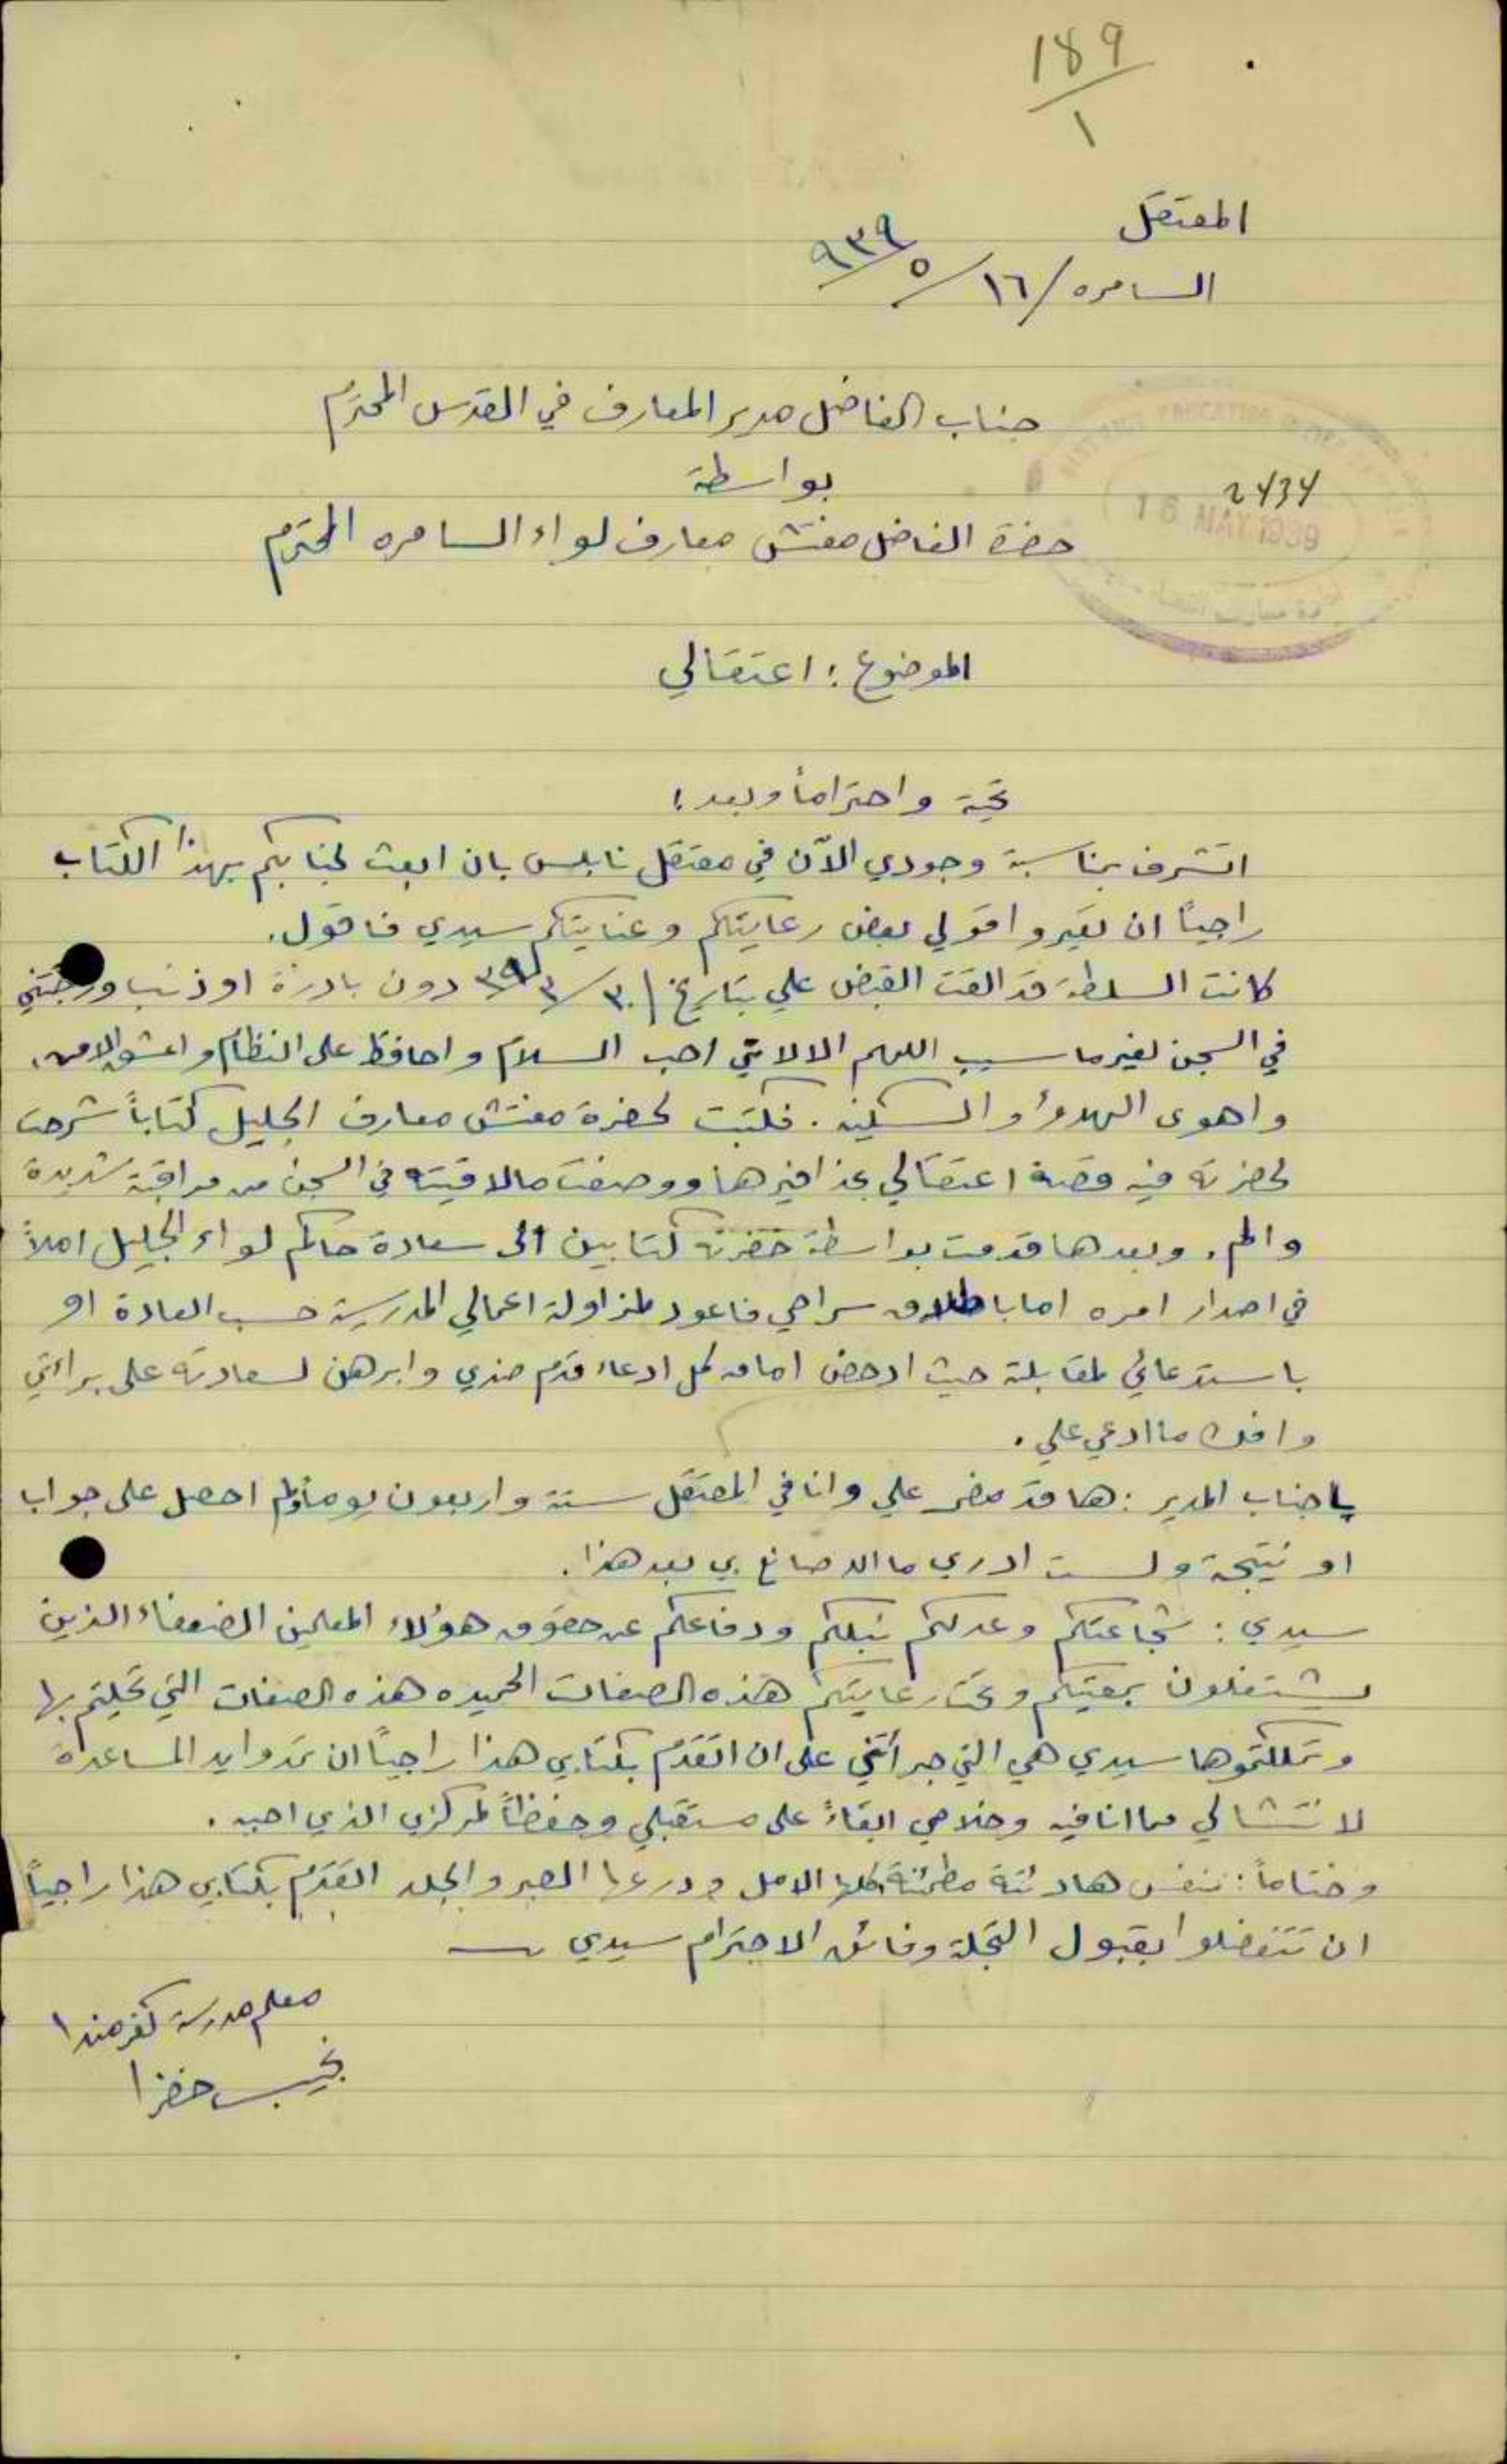 189
١
المعتقل
السامره / ١٦ / ٥ / ٩٣٩
جناب الفاضل مدير المعارف في القدس المحترم
بواسطة
2434
16 MAY 1939
حضرة الفاضل مفتش معارف لواء السامره المحترم
الموضوع : اعتقالي
تحية واحتراماً وبعد :
اتشرف بمناسبة وجودي الآن في معتقل نابلس بان ابعث لجنابكم بهذا الكتاب
راجياً ان تعيروا قولي بعض رعايتكم وعنايتكم سيدي فاقول.
كانت السلطة قد القت القبض علي بتاريخ ٣٠ / ٣ / ٣٩ دون بادرة او ذنب وزجتني
في السجن لغير ما سبب اللهم الا لانني احب السلام واحافظ على النظام واعشق الامن،
واهوى الهدوء والسكينه . فكتبت لحضرة مفتش معارف الجليل كتاباً شرحت
لحضرته فيه قصة اعتقالي بحذافيرها ووصفت ما لاقيته في السجن من مراقبة شديدة
والم. وبعدها قدمت بواسطة حضرته كتابين الى سعادة حاكم لواء الجليل املاً
في اصدار امره اما باطلاق سراحي فاعود لمزاولة اعمالي المدرسية حسب العادة او
باستدعائي لمقابلة حيث ادحض امامه كل ادعاء قدم ضدي وابرهن لسعادته على براءتي
وافك ما ادعي علي .
يا جناب المدير : ها قد مضى علي وانا في المعتقل ستة واربعون يوماً ولم احصل على جواب
او نتيجة ولست ادري ما الله صانع بي بعد هذا.
سيدي : شجاعتكم وعدلكم نبلكم ودفاعكم عن حقوق هؤلاء المعلمين الضعفاء الذين
يشتغلون بمعيتكم وتحت رعايتكم هذه الصفات الحميده هذه الصفات التي تحليتم بها
وتملكتموها سيدي هي التي جرأتني على ان اتقدم بكتابي هذا راجياً ان تمدوا يد المساعدة
لانتشالي مما انا فيه وخلاصي ابقاءً على مستقبلي وحفظاً لمركزي الذي احبه .
وختاماً : بنفس هادئة مطمئنة كلها الامل ودرعها الصبر والجلد اتقدم بكتابي هذا راجياً
ان تتفضلوا بقبول التجلة وفائق الاحترام سيدي
معلم مدرسة كفرمندا
نجيب خضرا